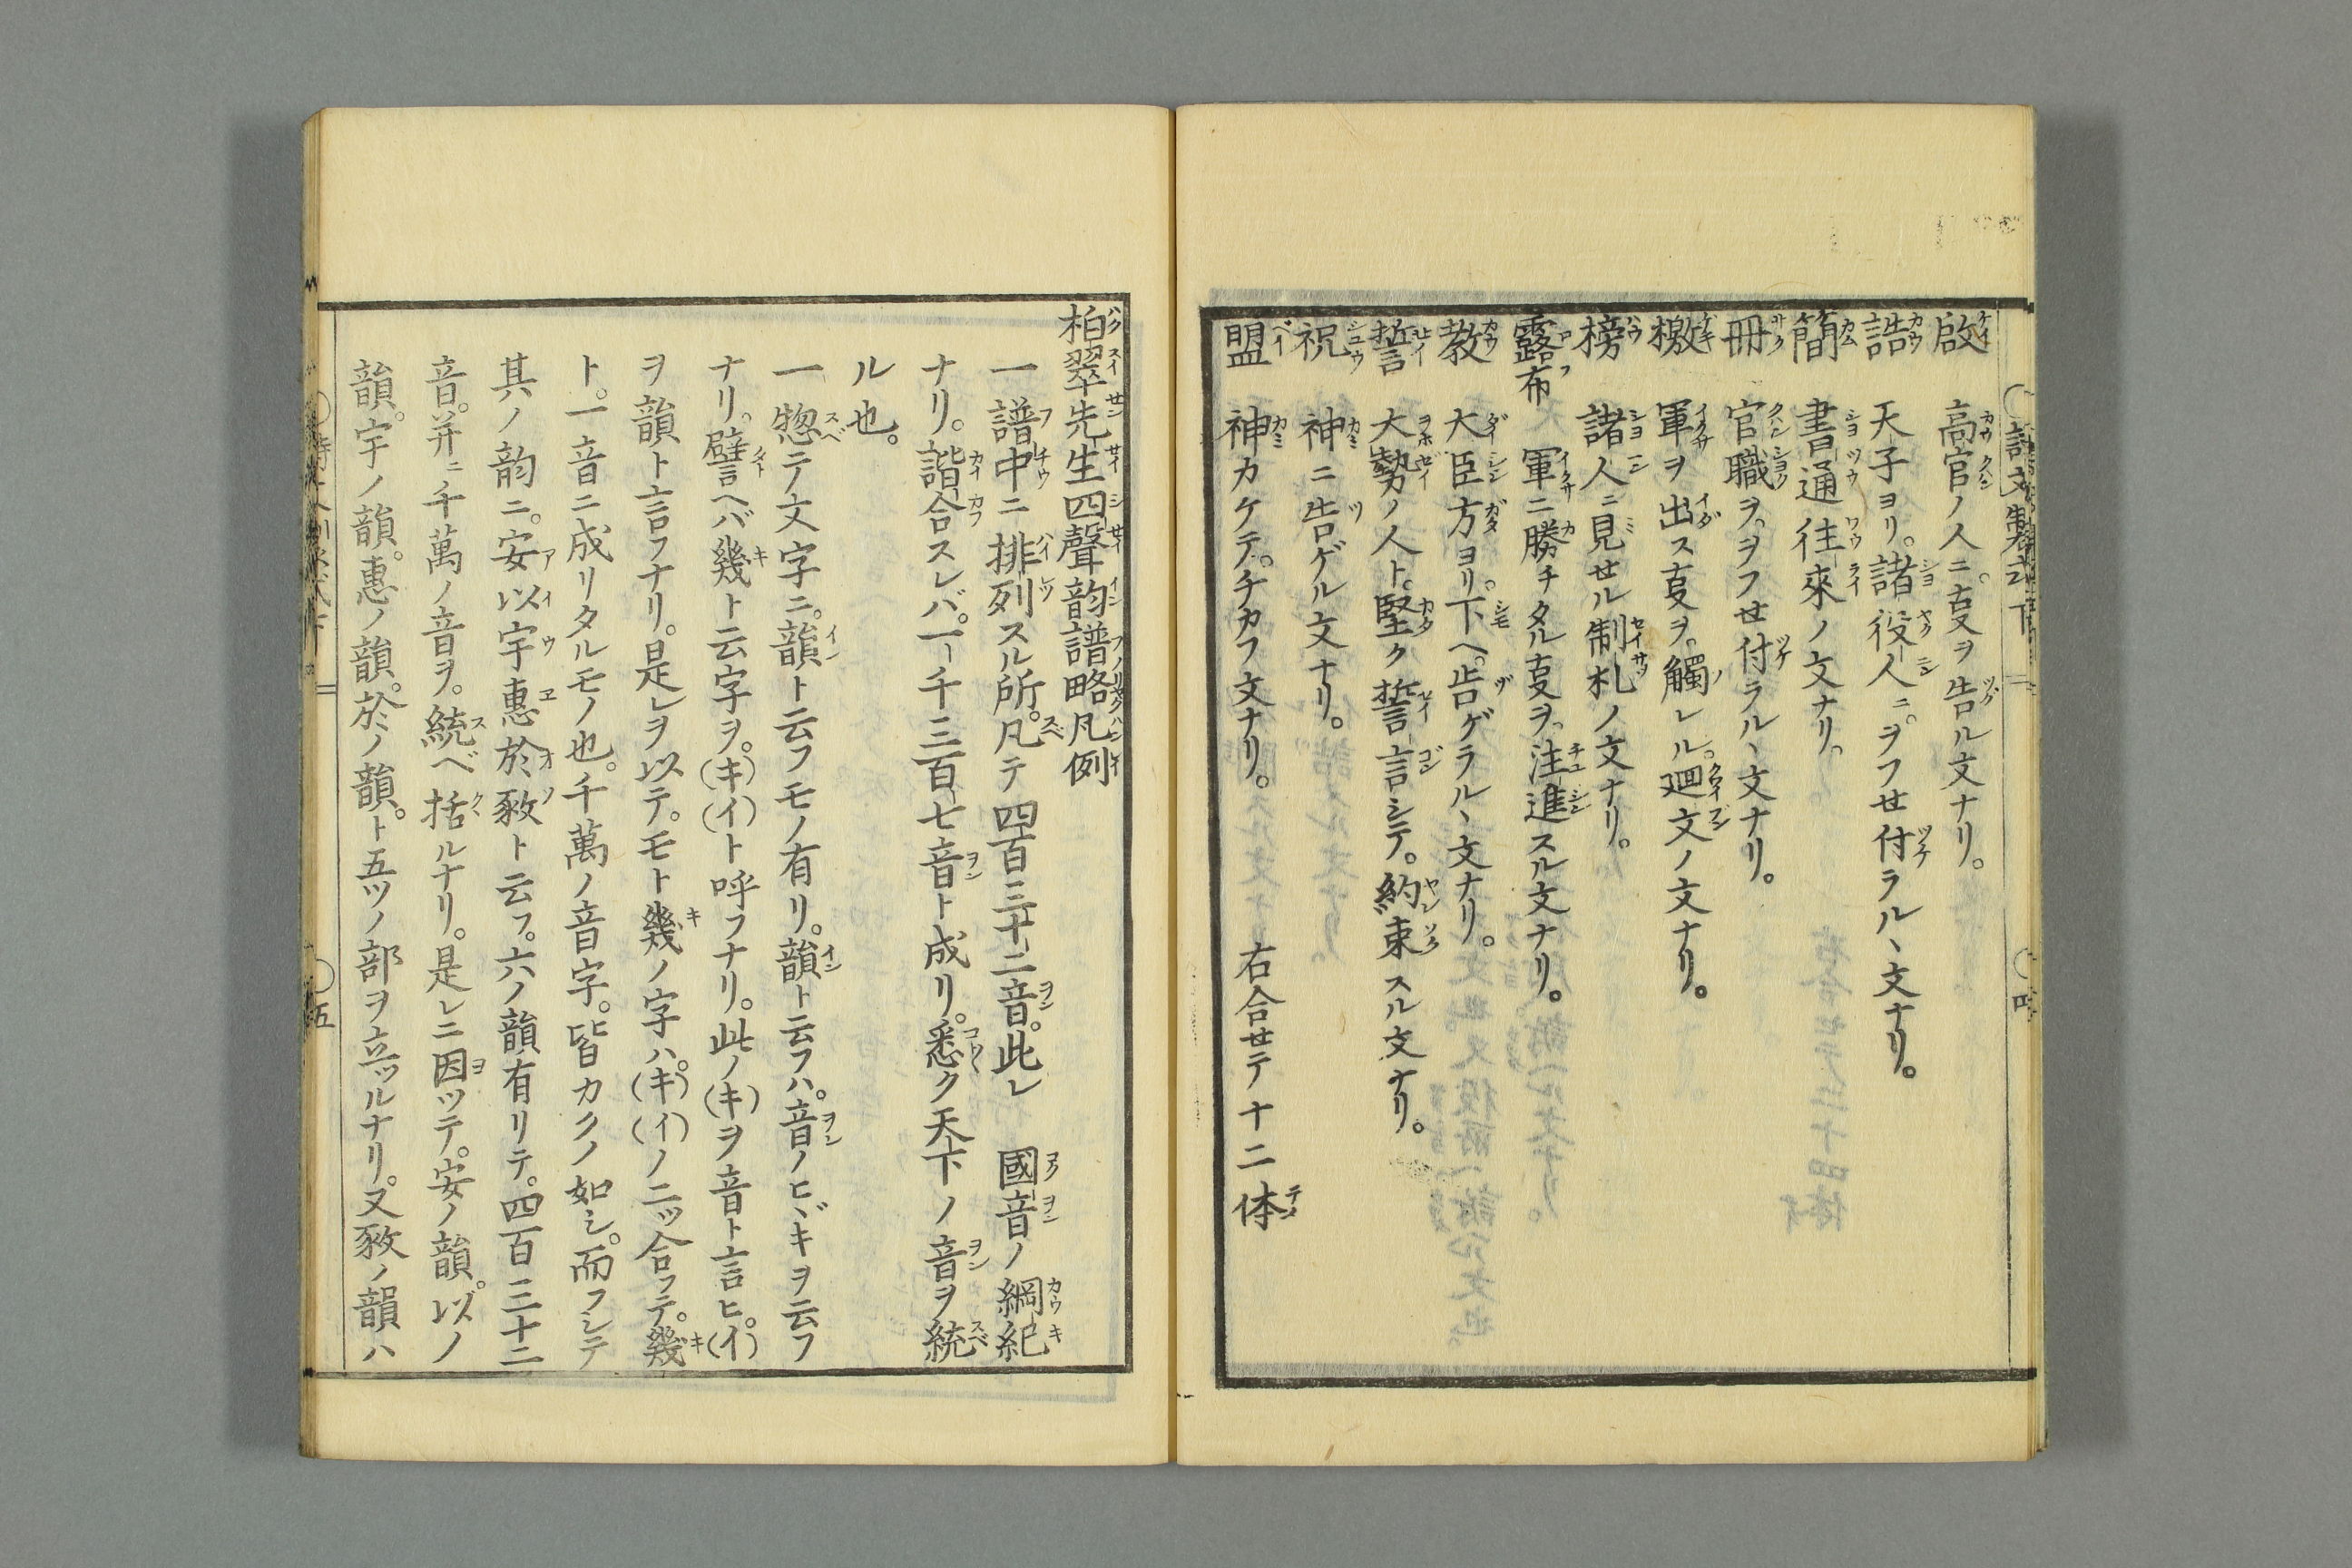 啟 高官ノ人ニ。叓ヲ告ル文ナリ。
誥 天子ヨリ。諸役人ニ。ヲフせ付ラル、文ナリ。
簡 書通往來ノ文ナリ。
冊 官職ヲ。ヲフせ付ラル、文ナリ。
檄 軍ヲ出ス叓ヲ。觸レル。廻文ノ文ナリ。
榜 諸人ニ見せル制札ノ文ナリ。
露布 軍ニ勝チタル叓ヲ。注進スル文ナリ。
教 大臣方ヨリ。下ヘ。告ゲラル、文ナリ。
誓 大勢ノ人ト。堅ク誓言シテ。約束スル文ナリ。
祝 神ニ告ゲル文ナリ。
盟 神カケテ。チカフ文ナリ。 右合せテ十二体
柏翠先生四聲韵譜略凡例
一譜中ニ排列スル所。凡テ四百三十二音。此レ 國音ノ綱紀
ナリ。諧合スレバ。一千三百七音ト成リ。悉ク天下ノ音ヲ統
ル也。
一惣テ文字ニ。韻ト云フモノ有リ。韻ト云フハ。音ノヒヾキヲ云フ
ナリ。譬ヘバ幾ト云字ヲ。(キ)(イ)ト呼フナリ。此ノ(キ)ヲ音ト言ヒ。(イ)
ヲ韻ト言フナリ。是レヲ以テ。モト幾ノ字ハ。(キ)(イ)ノ二ッ合フテ。幾
ト。一音ニ成リタルモノ也。千萬ノ音字。皆カクノ如シ。而フシテ
其ノ韵ニ。安以宇惠於敄ト云フ。六ノ韻有リテ。四百三十二
音。并ニ千萬ノ音ヲ。統ベ括ルナリ。是レニ因ッテ。安ノ韻。以ノ
韻。宇ノ韻。惠ノ韻。於ノ韻。ト五ツノ部ヲ立ッルナリ。又敄ノ韻ハ